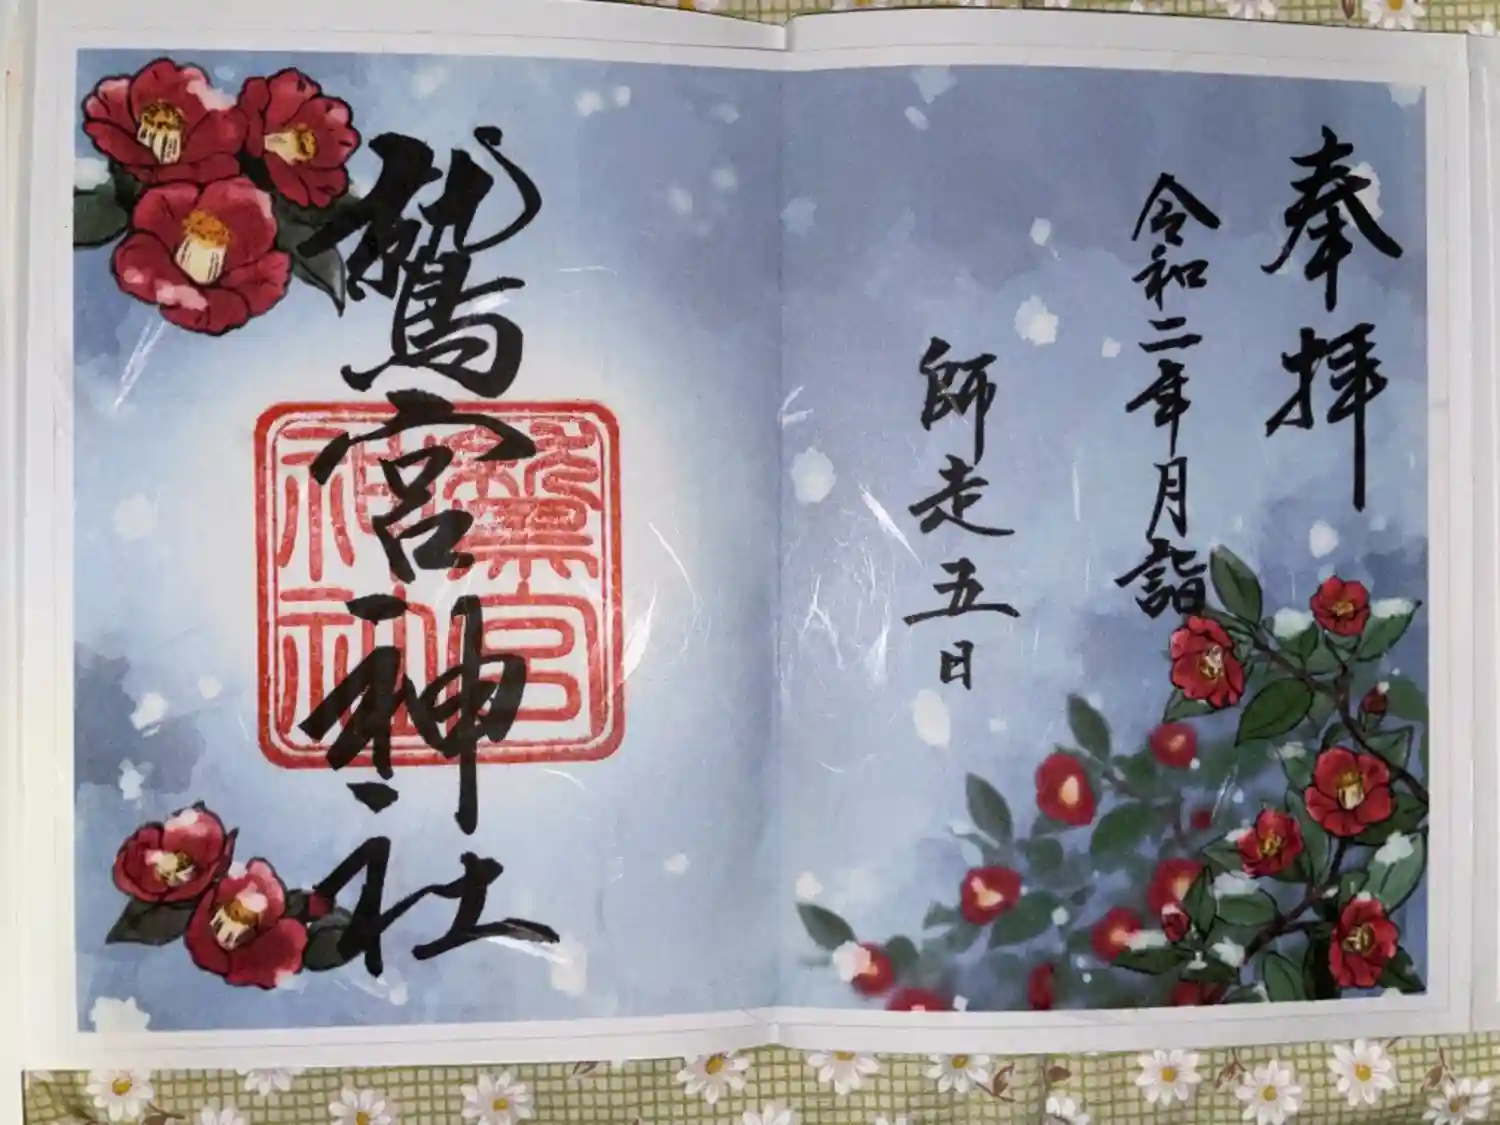 奉拝
令和二年月詣
師走五日
鷲宮神社
鷲宮
神社